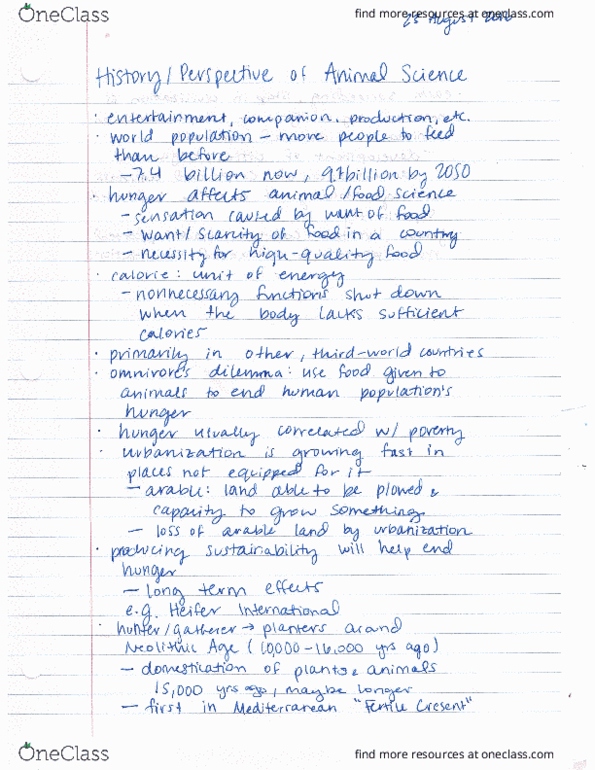 OneClass
find more resources at oneclass.com
August
History/Perspective of Animal Science
· entertainment, companion, production, etc.
· world population – more people to feed
than before
– 7.4 billion now, 9.7 billion by 2050
· hunger affects animal/food science
– sensation caused by want of food
– want/scarcity of food in a country
– necessity for high-quality food
· calorie: unit of energy
– nonnecessary functions shut down
when the body lacks sufficient
calories
· primarily in other, third-world countries
· omnivore's dilemma: use food given to
animals to end human population's
hunger
· hunger usually correlated w/ poverty
· urbanization is growing fast in
places not equipped for it
– arable: land able to be plowed &
capacity to grow something
– loss of arable land by urbanization
· producing sustainability will help end
hunger
– long term effects
e.g. Heifer International
· hunter/gatherer → planters around
Neolithic Age (10,000–16,000 yrs ago)
– domestication of plants & animals
15,000 yrs ago, maybe longer
– first in Mediterranean "Fertile Cresent"
OneClass
find more resources at oneclass.com